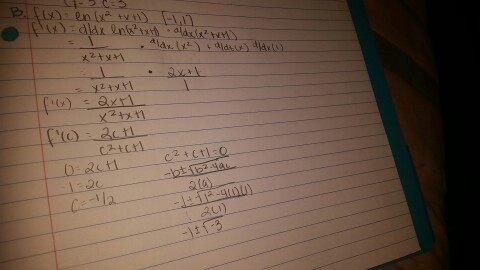 C=3
B. f(x) = ln(x²+x+1) [-1,1]
f'(x) = d/dx ln(x²+x+1) · d/dx(x²+x+1)
= 1/x²+x+1 · d/dx(x²) + d/dx(x) d/dx(1)
= 1/x²+x+1 · 2x+1/1
f'(x) = 2x+1/x²+x+1
f'(c) = 2c+1/c²+c+1
0 = 2c+1
-1 = 2c
C = -1/2
c²+c+1=0
-b±√b²-4ac/2(a)
-1±√1²-4(1)(1)/2(1)
-1±√-3